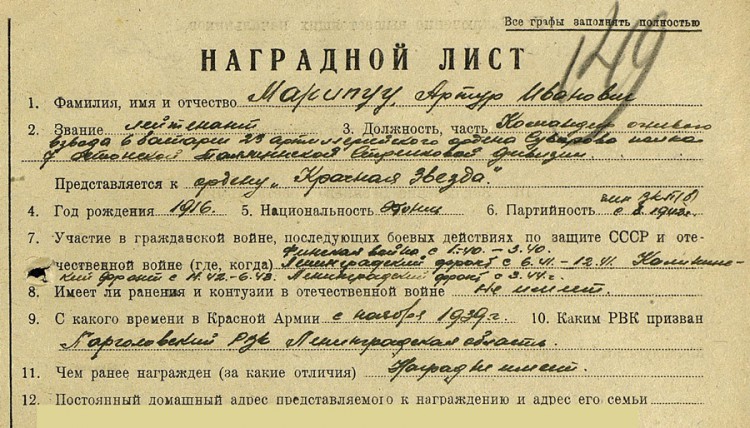 Все графы заполнять полностью
149
НАГРАДНОЙ ЛИСТ
1. Фамилия, имя и отчество Макипуу Артур Иванович
2. Звание лейтенант 3. Должность, часть Командир огневого
взвода 6 батареи 23 артиллерийского ордена Суворова полка
7 Эстонской Таллинской Стрелковой дивизии.
Представляется к ордену „Красная Звезда."
4. Год рождения 1916. 5. Национальность Эстонец 6. Партийность член ВКП(б)
с 8.1943г.
7. Участие в гражданской войне, последующих боевых действиях по защите СССР и оте-
Финская война с 1.40.-3.40.
чественной войне (где, когда) Ленинградский фронт с 6.41.-12.41. Калинин-
ский фронт с 11.42.-6.43. Ленинградский фронт с 3.44.г.
8. Имеет ли ранения и контузии в отечественной войне Не имеет.
9. С какого времени в Красной Армии с ноября 1939г. 10. Каким РВК призван
Парголовский РВК Ленинградская область.
11. Чем ранее награжден (за какие отличия) Наград не имеет.
12. Постоянный домашный адрес представляемого к награждению и адрес его семьи